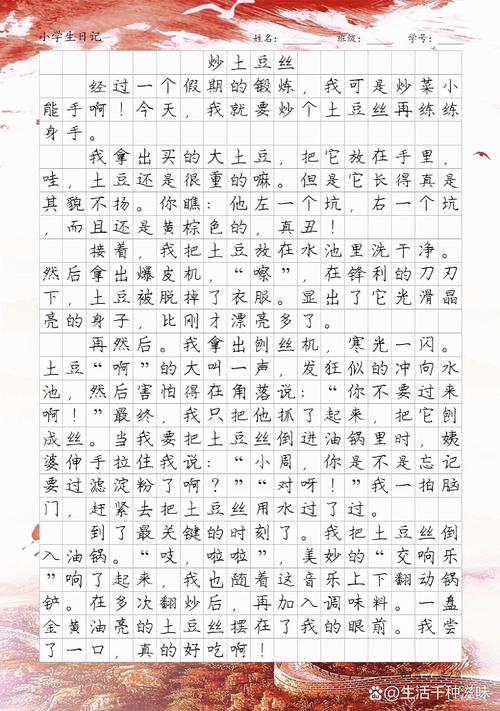 小学生日记 姓名： 班级： 学号：
炒土豆丝
经过一个假期的锻炼，我可是炒菜小
能手啊！今天，我就要炒个土豆丝再练练
身手。
我拿出买的大土豆，把它放在手里，
哇，土豆还是很重的嘛。但是它长得真是
其貌不扬。你瞧：他左一个坑，右一个坑
，而且还是黄棕色的，真丑！
接着，我把土豆放在水池里洗干净。
然后拿出爆皮机，“嚓”，在锋利的刀刃
下，土豆被脱掉了衣服。显出了它光滑晶
亮的身子，比刚才漂亮多了。
再然后。我拿出刨丝机，寒光一闪。
土豆“啊”的大叫一声，发狂似的冲向水
池，然后害怕得在角落说：“你不要过来
啊！”最终，我只把他抓了起来，把它刨
成丝。当我要把土豆丝倒进油锅里时，姨
婆伸手拉住我说：“小周，你是不是忘记
要过滤淀粉了啊？”“对呀！”我一拍脑
门，赶紧去把土豆丝用水过了过。
到了最关键的时刻了。我把土豆丝倒
入油锅。“吱，啦啦”，美妙的“交响乐
”响了起来，我也随着这音乐上下翻动锅
铲。在多次翻炒后，再加入调味料。一盘
金黄油亮的土豆丝摆在了我的眼前。我尝
了一口，真的好吃啊！
@生活千种滋味